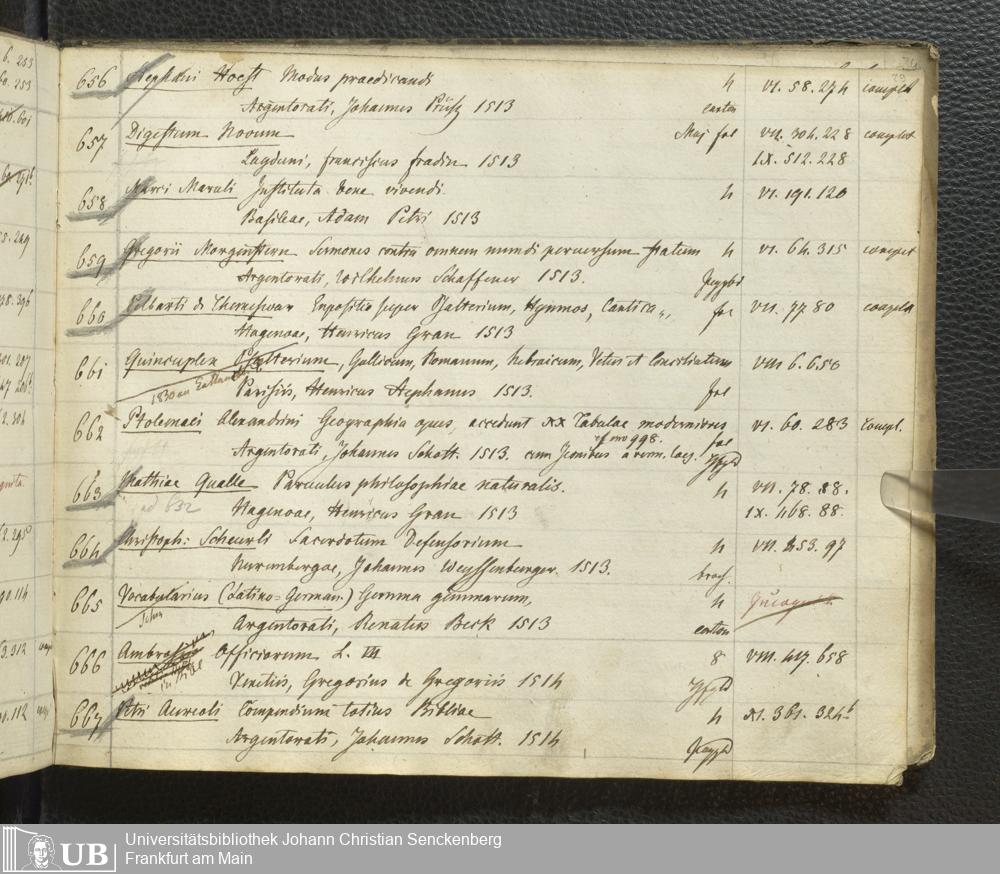 656 Stephani Hoest Modus praedicandi 4 VI. 58. 274 complet
Argentorati, Johannes Prüsz 1513 carton
657 Digestum Novum Maj fol VII. 304. 228 complet
Lugduni, franciscus fradin 1513 IX. 512. 228
658 Marci Maruli Instituta bene vivendi. 4 VI. 191. 120
Basileae, Adam Petri 1513
659 Gregorii Morgenstern Sermones contra omnem mundi perversum statum 4 VI. 64. 315 complet
Argentorati, Wilhelmus Schaffener 1513.
660 Pelbarti de Themeswar Expositio super Psalterium, Hymnos, Cantica, fol VII. 77. 80 complet
Hagenoae, Henricus Gran 1513
661 Quincuplex Psalterium, Gallicum, Romanum, hebraicum, Vetus et Conciliatum VIII 6. 6. 56
1830 an
Parisiis, Henricus Stephanus 1513. fol
662 Ptolemaei Alexandrini Geographia opus, accedunt XX Tabulae moderniores fol VI. 60. 283 compl.
Argentorati, Johannes Schott. 1513. cum
663 Mathiae Qualle Parvulus philosophiae naturalis. 4 VII. 78. 88.
ad 832
Hagenoae, Henricus Gran 1513 IX. 468. 88.
664 Christoph: Scheurli Sacerdotum Defensorium 4 VII. 453. 97
Nurembergae, Johannes Weyssenburger. 1513. broch.
665 Vocabularius (Latino=German.) Gemma gemmarum, 4
Argentorati, Renatus Beck 1513 carton
666 Ambrosius Officiorum L. III 8 VIII. 417. 658
Venetiis, Gregorius de Gregoriis 1514
667 Petri Aureoli Compendium totius Bibliae 4 XI. 361. 324b
Argentorati, Johannes Schott. 1514
UB
Universitätsbibliothek Johann Christian Senckenberg
Frankfurt am Main